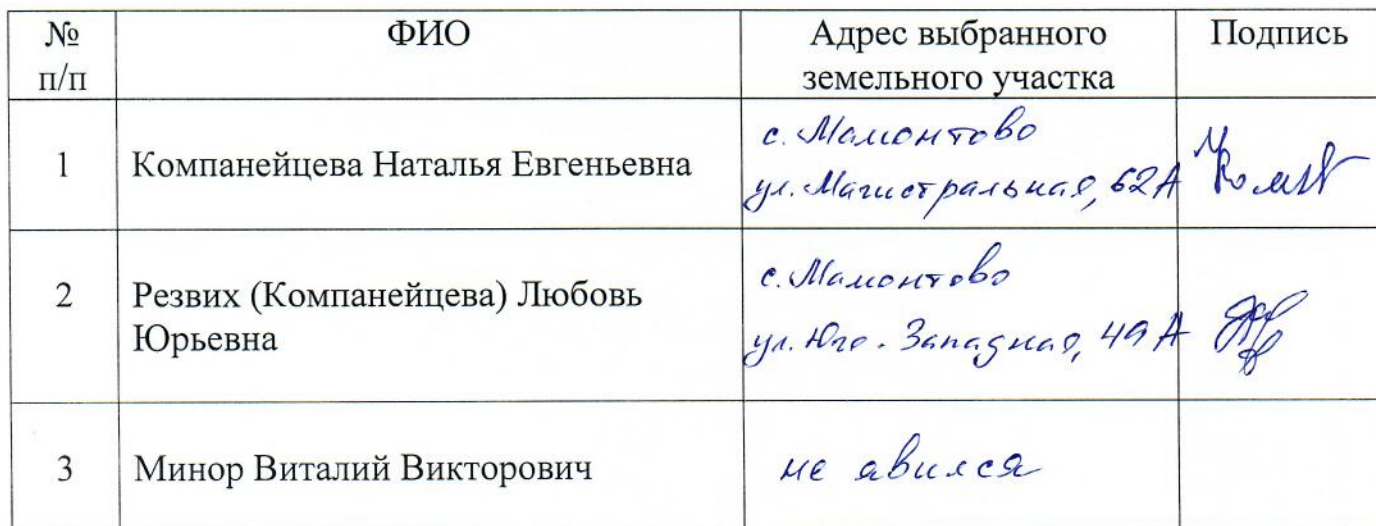 № п/п
ФИО
Адрес выбранного
земельного участка
Подпись
1
Компанейцева Наталья Евгеньевна
с. Мамонтово
ул. Магистральная, 62А
2
Резвих (Компанейцева) Любовь
Юрьевна
с. Мамонтово
ул. Юго-Западная, 49А
3
Минор Виталий Викторович
не явился